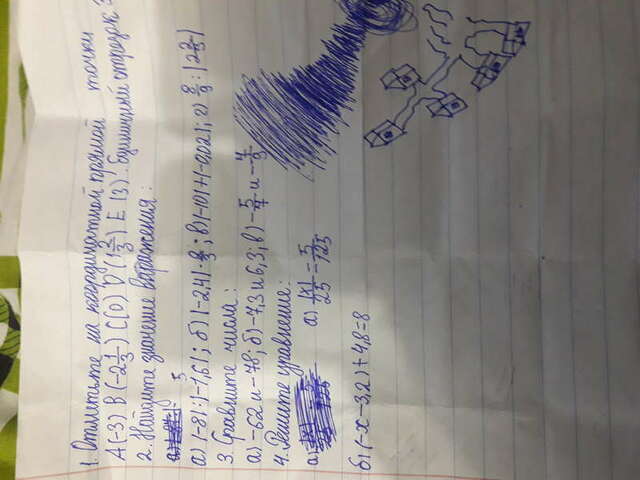 1. Отметьте на координатной прямой точки
A(-3) B(-2 1/3) C(0) D(1 2/3) E(3). Единичный отрезок 3
2. Найдите значение выражения:
а) |-8| : |-1,6|; б) |-2,4| · 2/3; в) |-10| + |-0,02|; г) 8/9 : |2 2/3|
3. Сравните числа:
а) -62 и -78; б) -7,3 и 6,3; в) -5/7 и -7/9
4. Решите уравнение:
а) |x|/25 = 5/125
б) (-x-3,2)+4,8=8